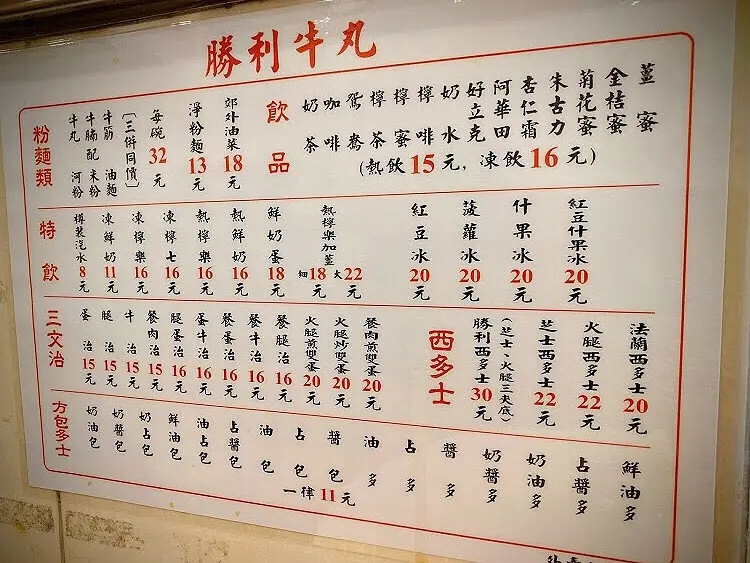 勝利牛丸
粉麵類
牛丸 河粉
牛腩配 米粉
牛筋 油麵
(三併同價)
每碗32元
淨粉麵13元
郊外油菜18元
飲品
奶茶
咖啡
鴛鴦
檸茶
檸蜜
檸啡
奶水
好立克
阿華田
杏仁霜
朱古力
菊花蜜
金桔蜜
薑蜜
(熱飲15元, 凍飲16元)
特飲
樽裝汽水8元
凍鮮奶11元
凍檸樂16元
凍檸七16元
熱檸樂16元
熱鮮奶16元
鮮奶蛋18元
熱檸樂加薑 細18元 大22元
紅豆冰20元
菠蘿冰20元
什果冰20元
紅豆什果冰20元
三文治
蛋治15元
腿治15元
牛治15元
餐肉治15元
腿蛋治16元
蛋牛治16元
餐蛋治16元
餐牛治16元
餐腿治16元
火腿煎雙蛋20元
火腿炒雙蛋20元
餐肉煎雙蛋20元
西多士
勝利西多士30元
(芝士、火腿三夾底)
芝士西多士22元
火腿西多士22元
法蘭西多士20元
方包多士
奶油包
奶醬包
奶占包
鮮油包
油占包
占醬包
油包
占包
醬包
油多
占多
醬多
奶醬多
奶油多
占醬多
鮮油多
一律11元